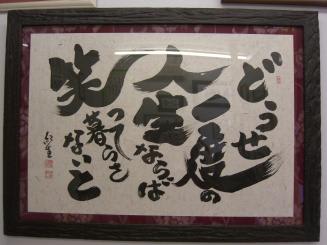 どうせ
一度の
人生
ならば
笑
って
暮らさ
ないと